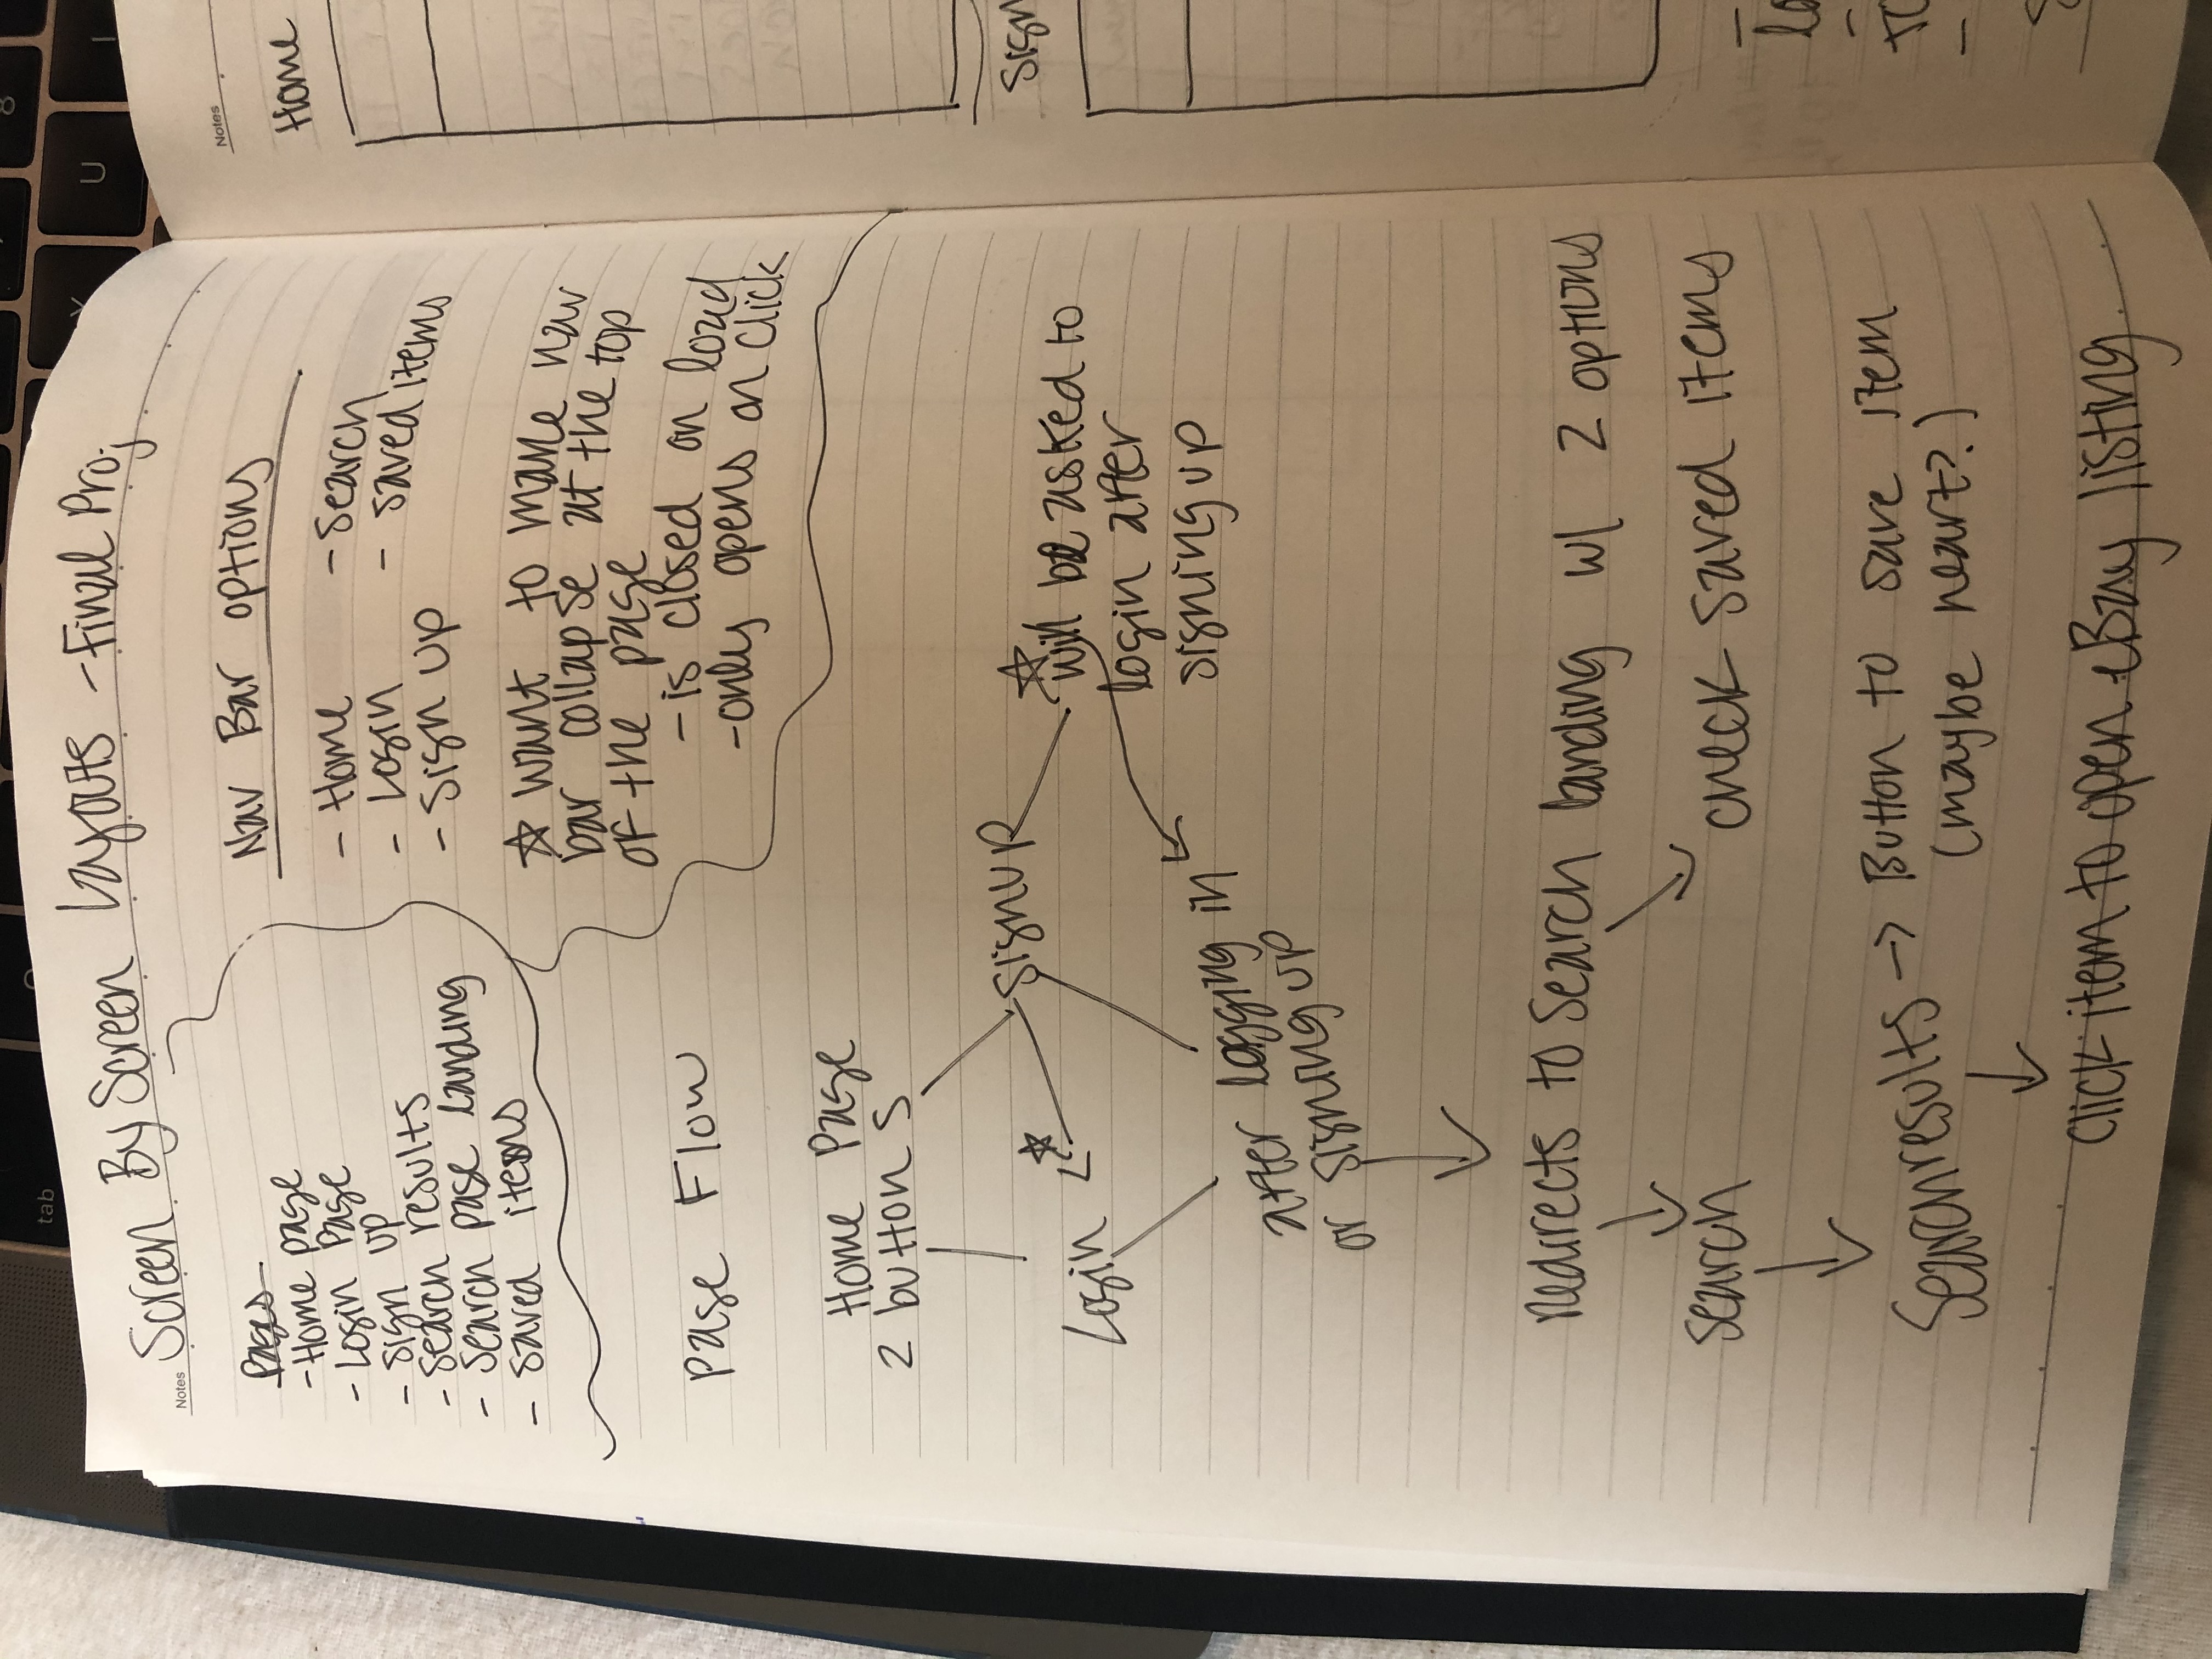 tab
U
8
Notes
Screen By Screen Layouts - Final Proj
Pages
- Home page
- Login Page
- Sign up
- Search results
- Search page landing
- Saved items
Nav Bar options
- Home
- Login
- Sign up
- Search
- Saved items
☆ want to make nav
bar collapse at the top
of the page
- is closed on load
- only opens on click
Page Flow
Home Page
2 buttons
Login
☆
Signup
☆
will be asked to
login after
signing up
after logging in
or signing up
redirects to Search landing w/ 2 options
Search
check saved items
Search results → Button to save item
(maybe heart?)
click item to open eBay listing
Notes
Home